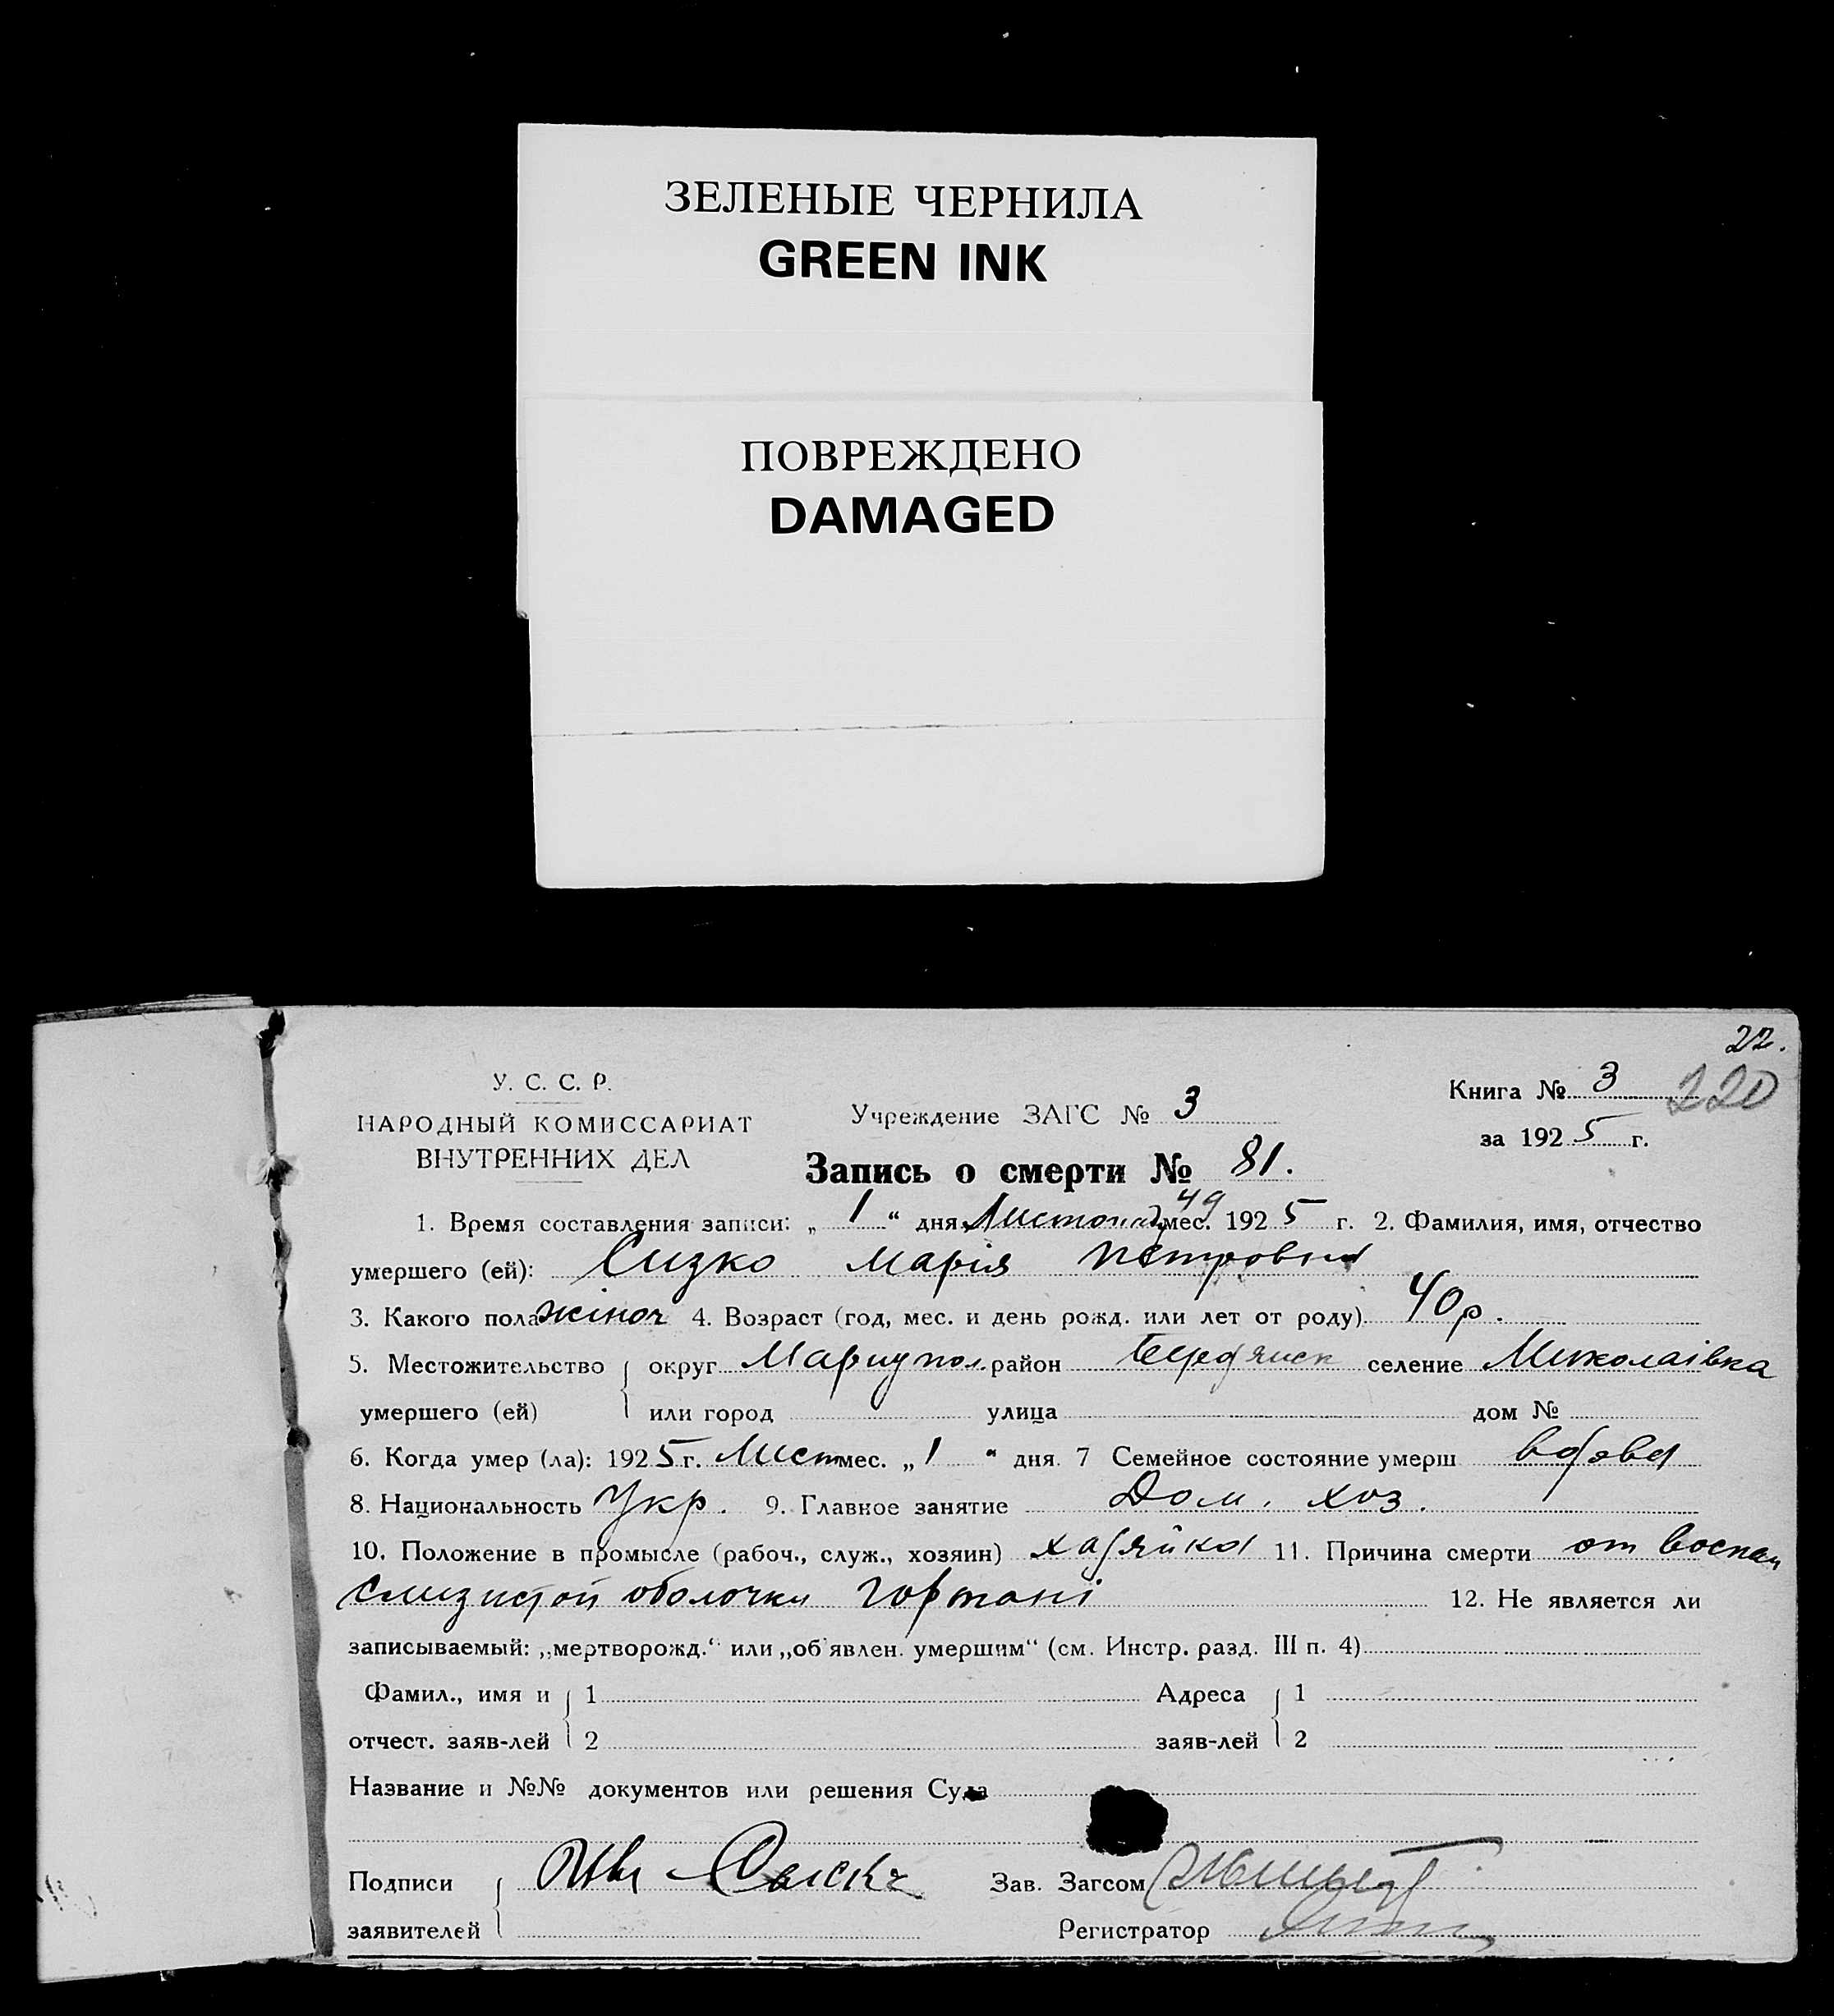 ЗЕЛЕНЫЕ ЧЕРНИЛА
GREEN INK
ПОВРЕЖДЕНО
DAMAGED
22.
220
У. С. С. Р.
НАРОДНЫЙ КОМИССАРИАТ
ВНУТРЕННИХ ДЕЛ
Учреждение ЗАГС № 3
Книга № 3
за 1925 г.
Запись о смерти № 81.
1. Время составления записи: „ 1 “ дня мес. 1925 г. 2. Фамилия, имя, отчество
умершего (ей): Сизко Марія Петровна
3. Какого пола жіноч 4. Возраст (год, мес. и день рожд. или лет от роду) 40 р.
5. Местожительство округ Мариупол. район Бердянск селение Миколаівка
умершего (ей) или город улица дом №
6. Когда умер (ла): 1925 г. Лист мес. „ 1 “ дня. 7 Семейное состояние умерш вдова
8. Национальность Укр. 9. Главное занятие Дом. хоз.
10. Положение в промысле (рабоч., служ., хозяин) хазяйка 11. Причина смерти от воспал
слизистой оболочки гортані 12. Не является ли
записываемый: „мертворожд.“ или „об'явлен. умершим“ (см. Инстр. разд. III п. 4)
Фамил., имя и 1 Адреса 1
отчест. заяв-лей 2 заяв-лей 2
Название и №№ документов или решения Суда
Подписи Зав. Загсом
заявителей Регистратор